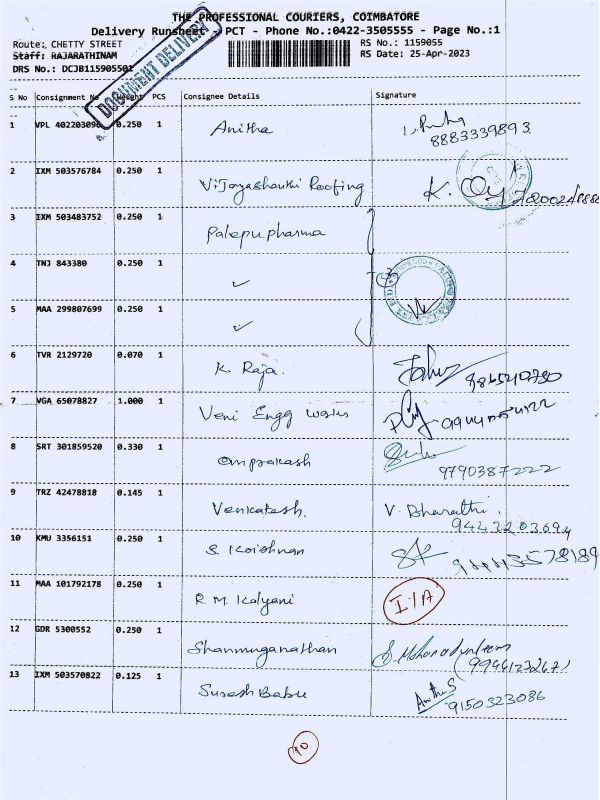 THE PROFESSIONAL COURIERS, COIMBATORE
Delivery Runsheet - PCT - Phone No.:0422-3505555 - Page No.:1
Route: CHETTY STREET RS No.: 1159055
Staff: RAJARATHINAM RS Date: 25-Apr-2023
DRS No.: DCJB115905501
DOCUMENT DELIVERY
S No Consignment No Weight PCS Consignee Details Signature
1 VPL 402203090 0.250 1 Anitha
8883339893
2 IXM 503576784 0.250 1 Vijayashanthi Roofing K.
3 IXM 503483752 0.250 1 Palepu pharma
4 TNJ 843380 0.250 1 ✓
5 MAA 299807699 0.250 1 ✓
6 TVR 2129720 0.070 1 K. Raja.
7 VGA 65078827 1.000 1 Veni Engg works
8 SRT 301859520 0.330 1 Omprakash
9790387222
9 TRZ 42478818 0.145 1 Venkatesh. V. Bharathi.
9443203694
10 KMU 3356151 0.250 1 S. Krishnan SK
11 MAA 101792178 0.250 1 R. M. Kalyani I/A
12 GDR 5300552 0.250 1 Shanmuganathan
13 IXM 503570822 0.125 1 Suresh Babu Anitha S
9150323086
10